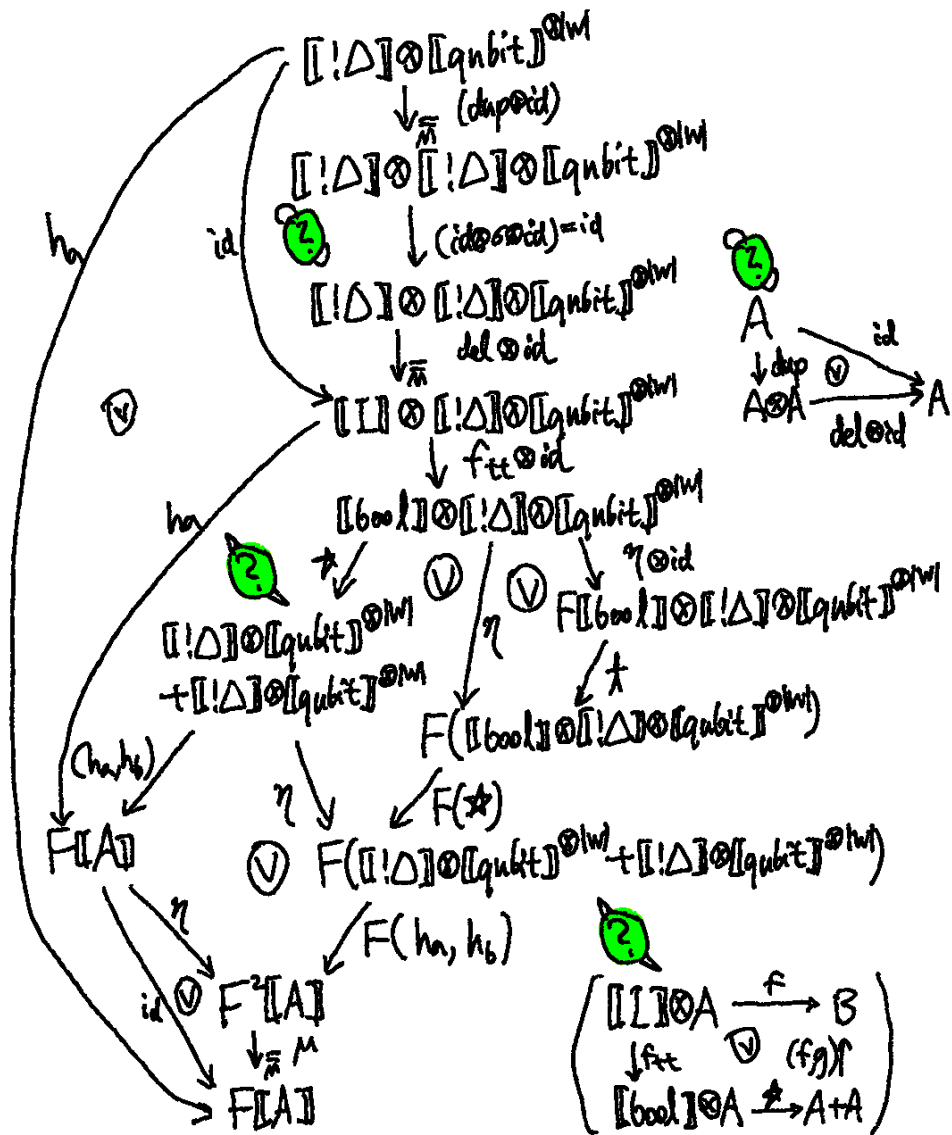 ⟦!Δ⟧⊗⟦qubit⟧^{⊗|w|}
↓ (dup⊗id)
⟦!Δ⟧⊗⟦!Δ⟧⊗⟦qubit⟧^{⊗|w|}
h_a
id
?
↓ (id⊗σ⊗id)=id
⟦!Δ⟧⊗⟦!Δ⟧⊗⟦qubit⟧^{⊗|w|}
↓ del⊗id
?
A
id
↓dup
A⊗A
A
del⊗id
⟦I⟧⊗⟦!Δ⟧⊗⟦qubit⟧^{⊗|w|}
↓ f_tt⊗id
h_a
⟦bool⟧⊗⟦!Δ⟧⊗⟦qubit⟧^{⊗|w|}
?
☆
η
η⊗id
F⟦bool⟧⊗⟦!Δ⟧⊗⟦qubit⟧^{⊗|w|}
⟦!Δ⟧⊗⟦qubit⟧^{⊗|w|}
+⟦!Δ⟧⊗⟦qubit⟧^{⊗|w|}
t
F(⟦bool⟧⊗⟦!Δ⟧⊗⟦qubit⟧^{⊗|w|})
(h_a,h_b)
η
F(☆)
F⟦A⟧
F(⟦!Δ⟧⊗⟦qubit⟧^{⊗|w|}+⟦!Δ⟧⊗⟦qubit⟧^{⊗|w|})
η
F(h_a, h_b)
?
id
F²⟦A⟧
↓ μ
F⟦A⟧
⟦I⟧⊗A f → B
↓f_tt
⟦bool⟧⊗A ☆→ A+A